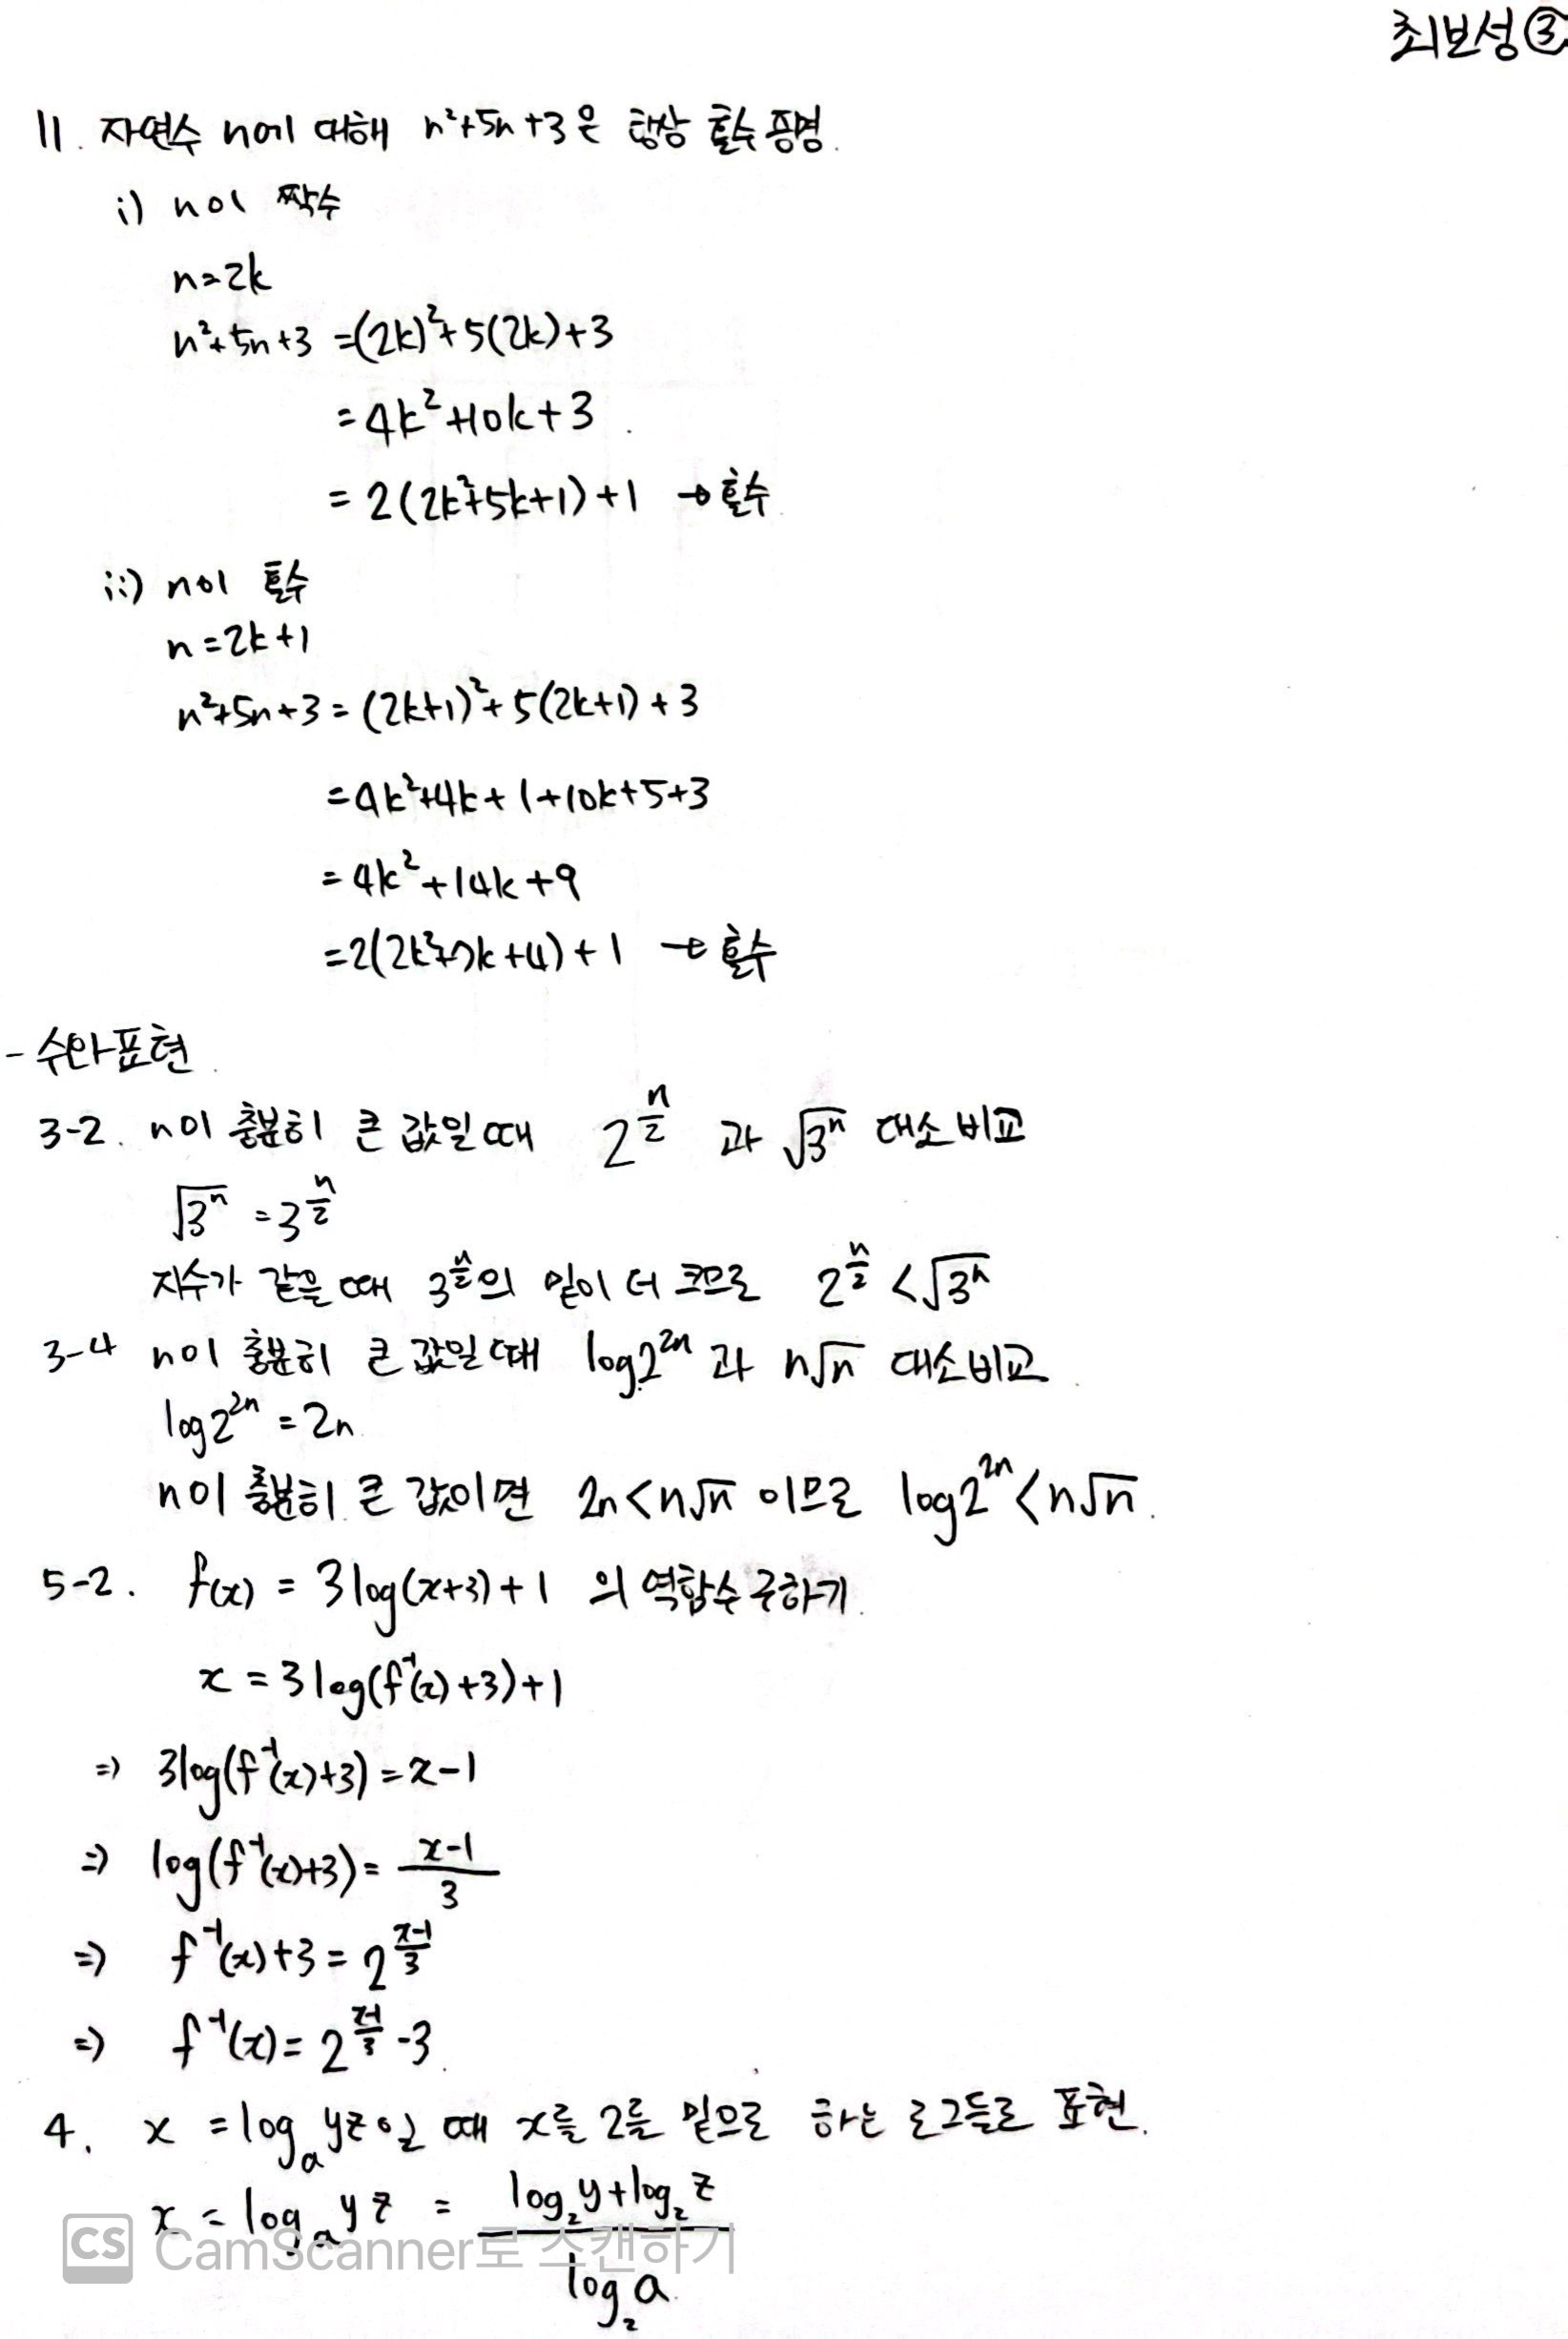 최보성③
11. 자연수 n에 대해 n²+5n+3은 항상 홀수 증명.
i) n이 짝수
n=2k
n²+5n+3 =(2k)²+5(2k)+3
= 4k²+10k+3
= 2(2k²+5k+1)+1 → 홀수
ii) n이 홀수
n=2k+1
n²+5n+3 = (2k+1)²+5(2k+1)+3
=4k²+4k+1+10k+5+3
= 4k²+14k+9
=2(2k²+7k+4)+1 → 홀수
- 수와 표현
3-2. n이 충분히 큰 값일 때 2^(n/2) 과 √3ⁿ 대소비교
√3ⁿ = 3^(n/2)
지수가 같을 때 3^(n/2)의 밑이 더 크므로 2^(n/2) < √3ⁿ
3-4 n이 충분히 큰 값일 때 log2²ⁿ 과 n√n 대소비교.
log2²ⁿ = 2n
n이 충분히 큰 값이면 2n < n√n 이므로 log2²ⁿ < n√n.
5-2. f(x) = 3log(x+3)+1 의 역함수 구하기.
x = 3log(f⁻¹(x)+3)+1
⇒ 3log(f⁻¹(x)+3) = x-1
⇒ log(f⁻¹(x)+3) = (x-1)/3
⇒ f⁻¹(x)+3 = 2^((x-1)/3)
⇒ f⁻¹(x) = 2^((x-1)/3) -3.
4. x = logₐyz일 때 x를 2를 밑으로 하는 로그들로 표현.
x = logₐyz = (log₂y+log₂z)/(log₂a).
CS CamScanner로 스캔하기